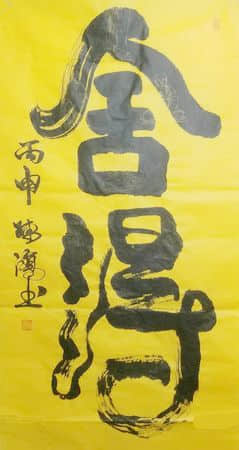 舍得
丙申